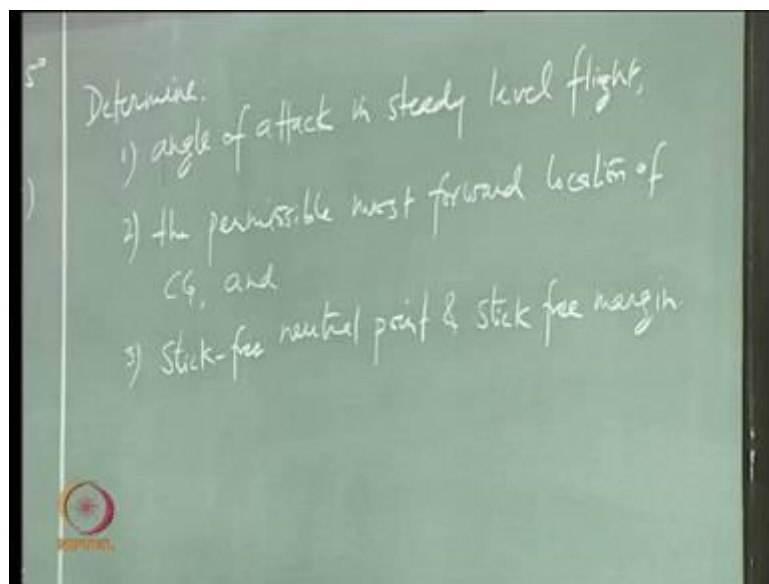 5°
Determine.
1) angle of attack in steady level flight,
)
2) the permissible most forward location of
CG, and
3) Stick-free neutral point & stick free margin.